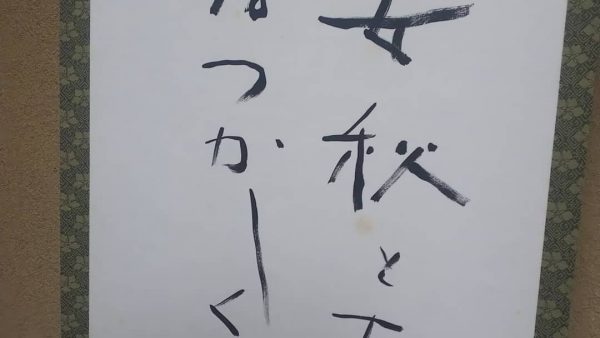 女秋と
なつかしく